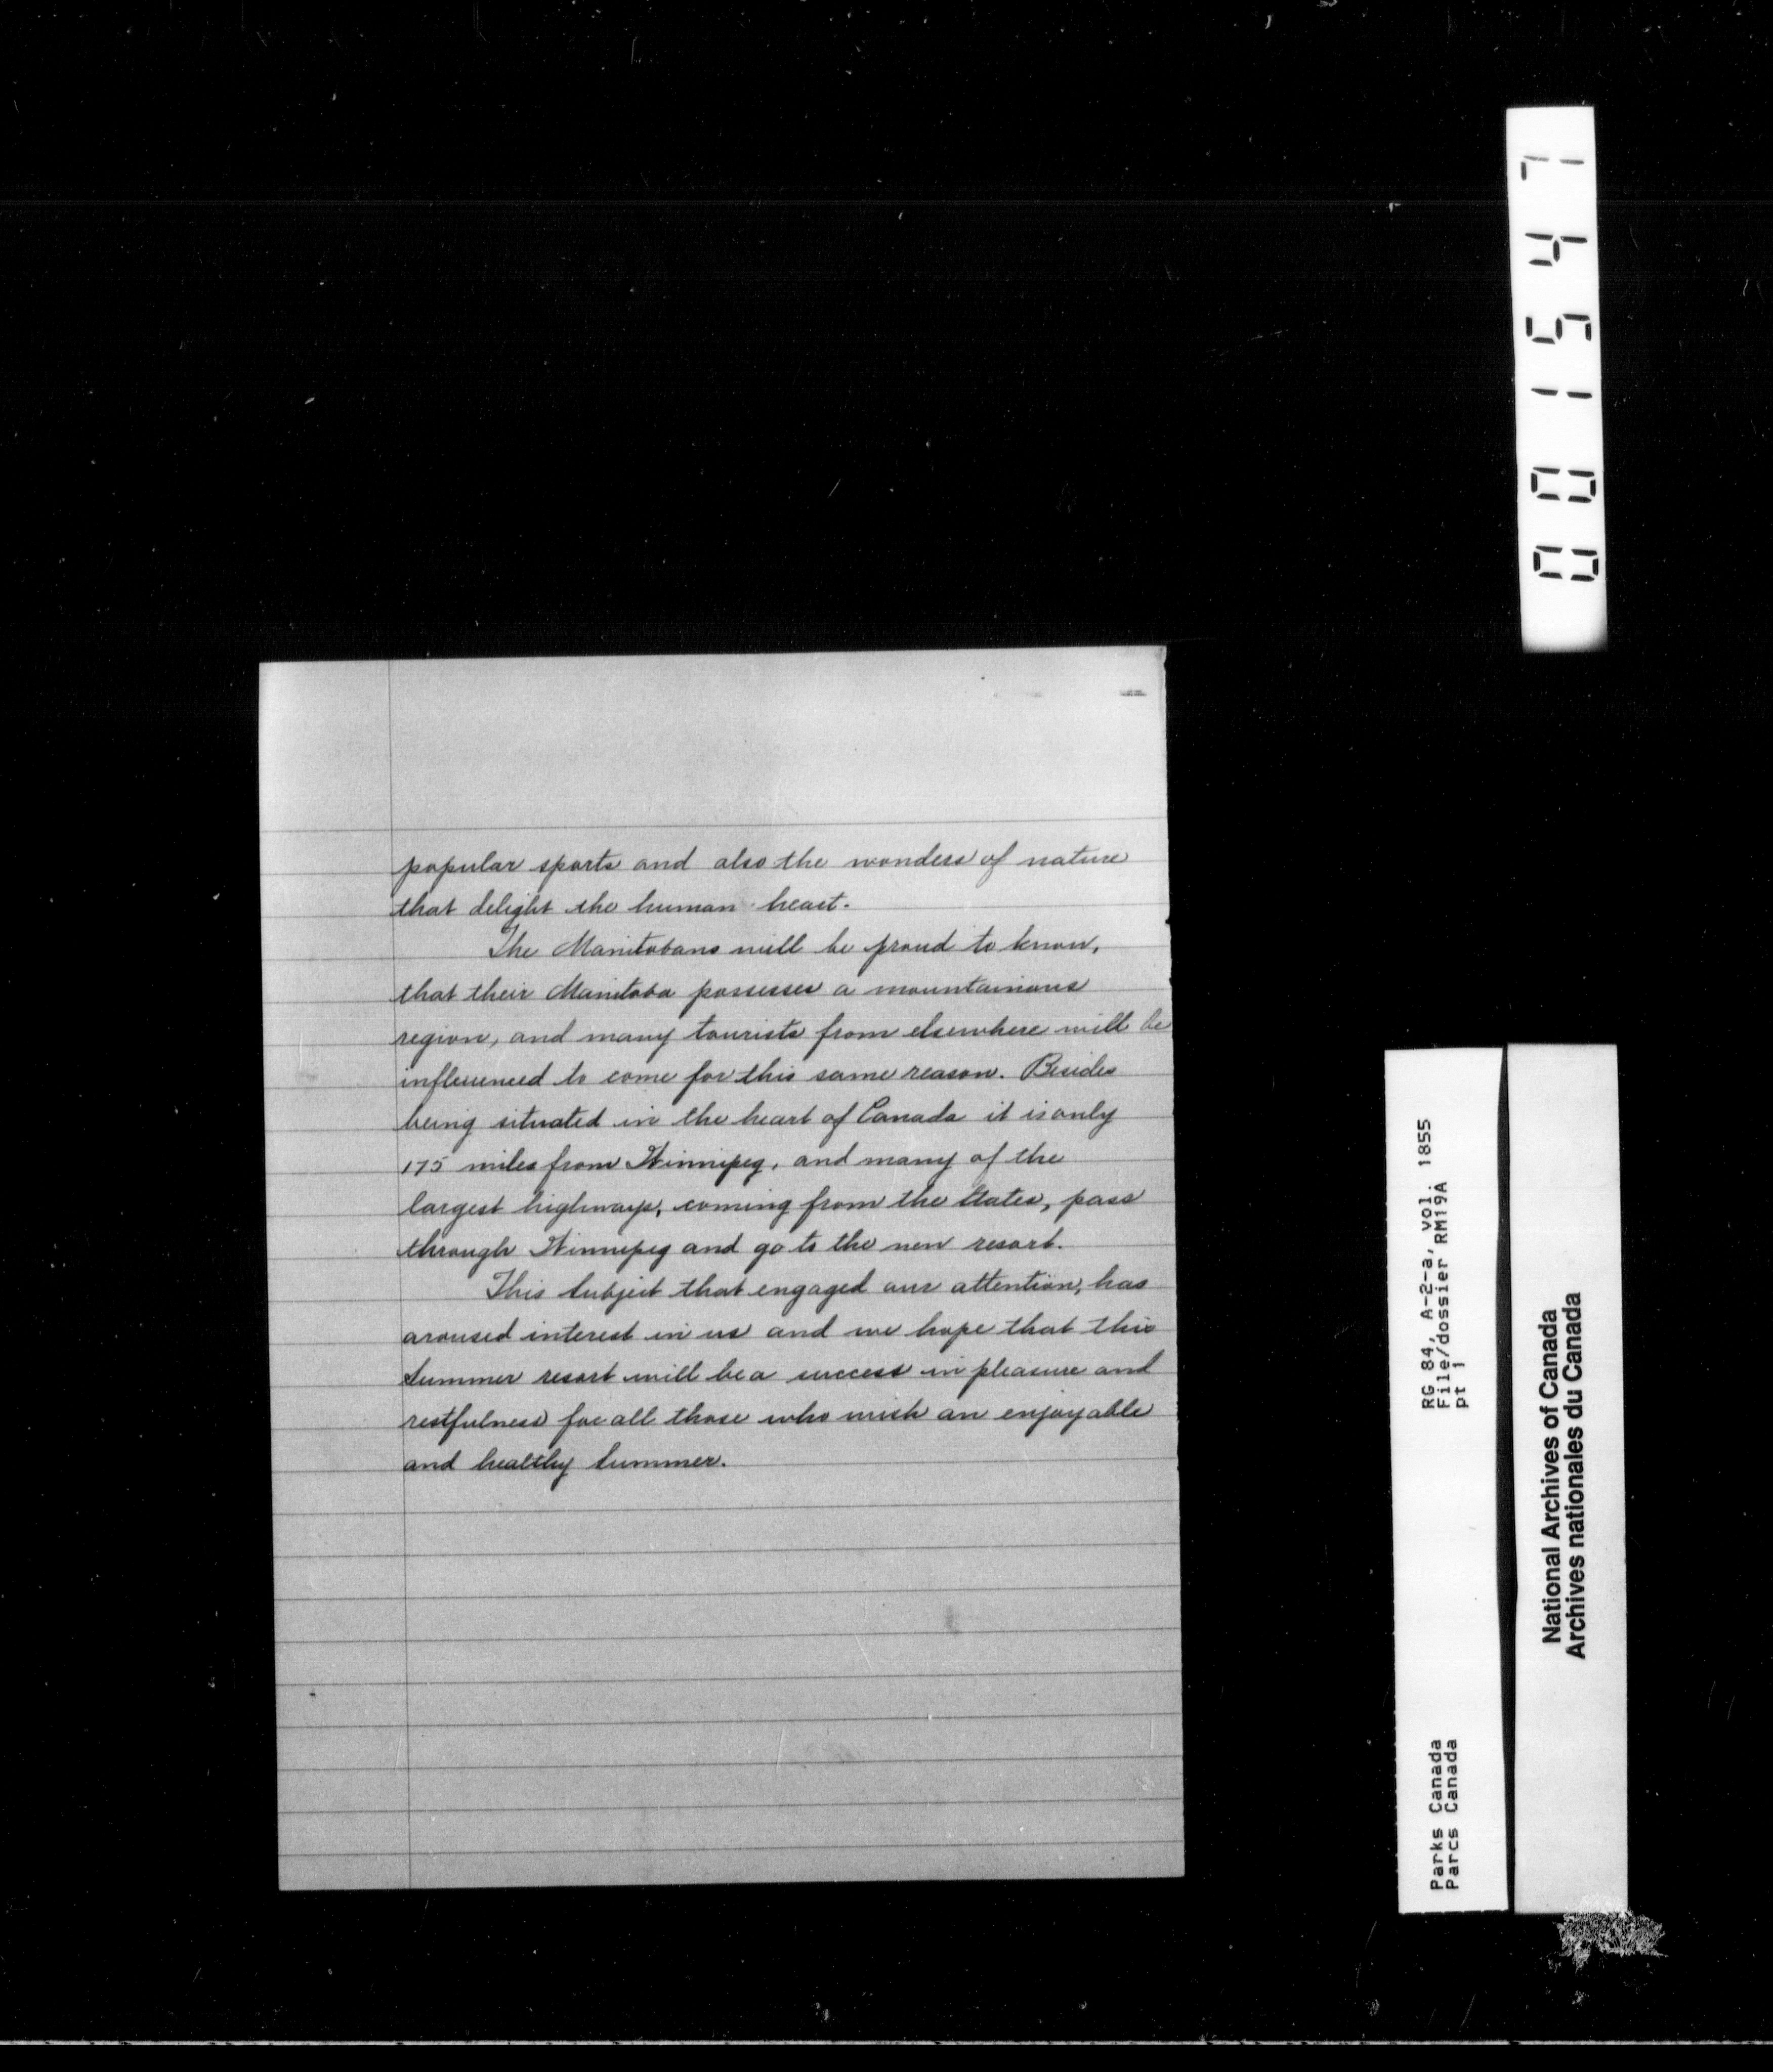 popular sports and also the wonders of nature
that delight the human heart.
The Manitobans will be proud to know,
that their Manitoba possesses a mountainous
region, and many tourists from elsewhere will be
influenced to come for this same reason. Besides
being situated in the heart of Canada it is only
175 miles from Winnipeg, and many of the
largest highways, coming from the States, pass
through Winnipeg and go to the new resort.
This Subject that engaged our attention, has
aroused interest in us and we hope that this
Summer resort will be a success in pleasure and
restfulness for all those who wish an enjoyable
and healthy Summer.
001547
RG 84, A-2-a, vol. 1855
File/dossier RM19A
pt 1
Parks Canada
Parcs Canada
National Archives of Canada
Archives nationales du Canada